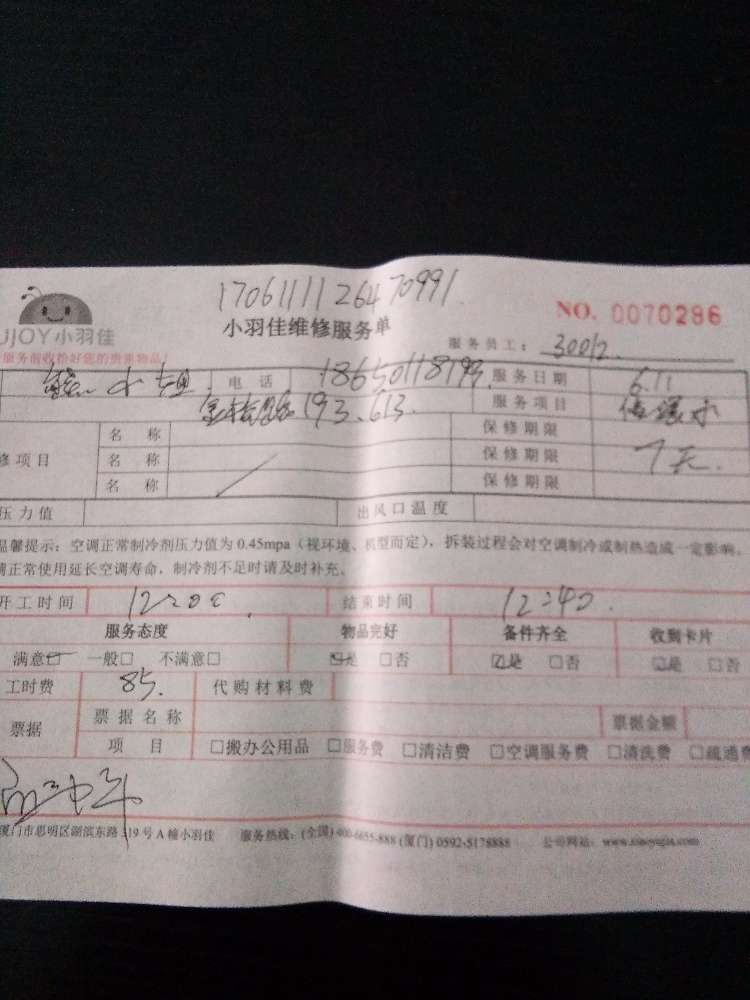 17061111126470991
NO. 0070286
UJOY小羽佳
小羽佳维修服务单
服务前收拾好您的贵重物品!
服务员工: 30012
小姐 电话 18650118193 服务日期 6.11
193.613. 服务项目
名称 保修期限
修项目 名称 保修期限 7天.
名称 保修期限
压力值 出风口温度
温馨提示:空调正常制冷剂压力值为 0.45mpa(视环境、机型而定),拆装过程会对空调制冷或制热造成一定影响。
调正常使用延长空调寿命,制冷剂不足时请及时补充。
开工时间 12:00 结束时间 12:40.
服务态度 物品完好 备件齐全 收到卡片
满意☑ 一般□ 不满意□ ☑是 □否 ☑是 □否 ☑是 □否
工时费 85. 代购材料费
票据 票据名称 票据金额
项目 □搬办公用品 □服务费 □清洁费 □空调服务费 □清洗费 □疏通费
厦门市思明区湖滨东路319号A幢小羽佳 服务热线:(全国)400-6655-888 (厦门) 0592-5178888 公司网站:www.xiaoyujia.com